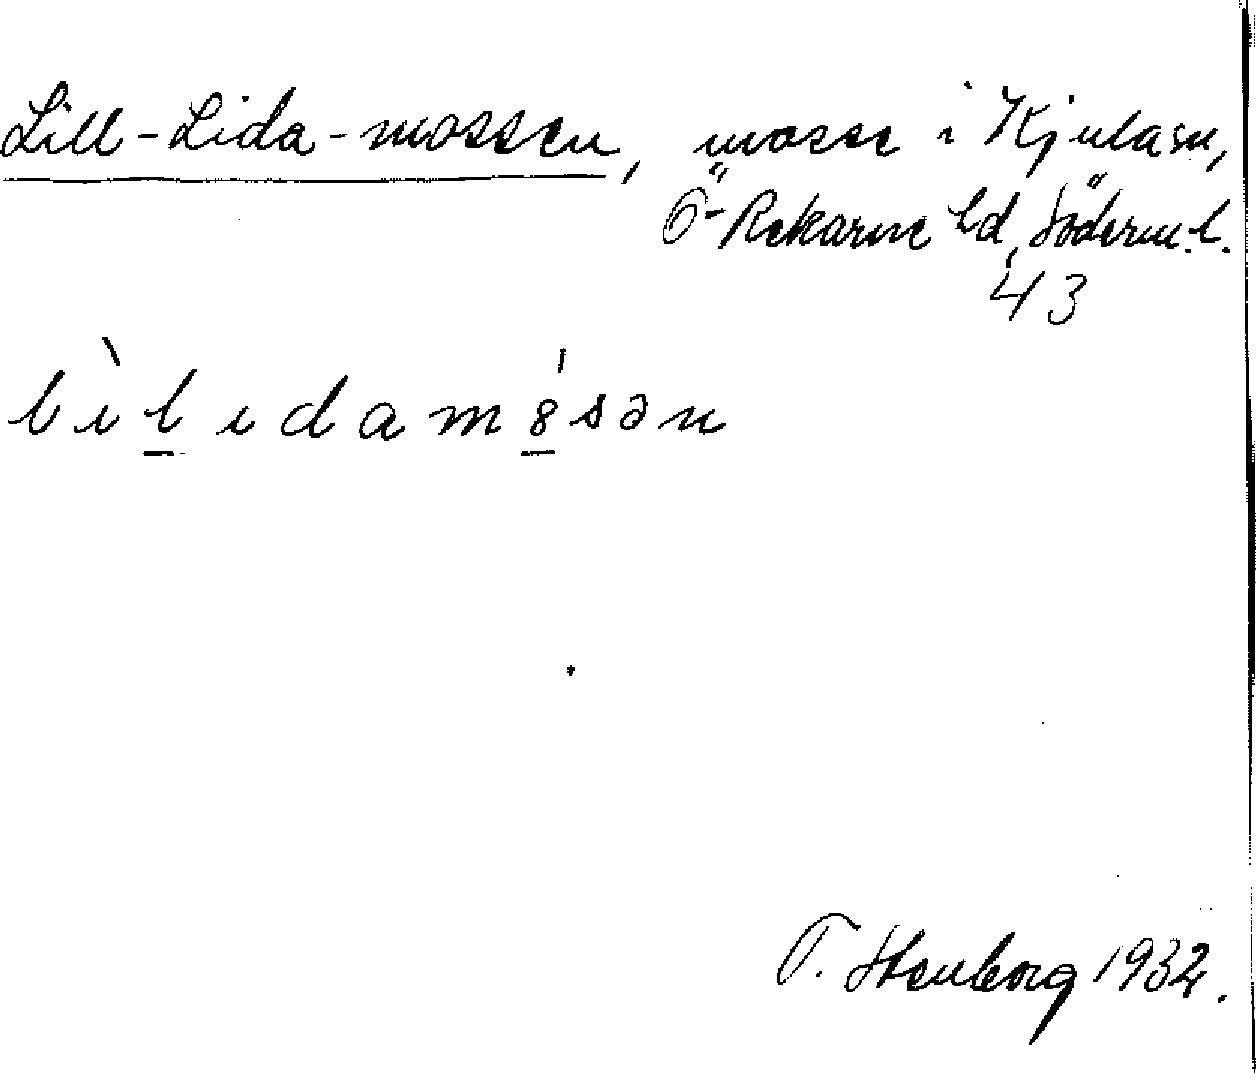 Lill-Lida-mossen, mosse i Kjula sn,
Ö-Rekarne hd, Söderm. l.
43
lìlıdam8́sən
T. Stenborg 1932.